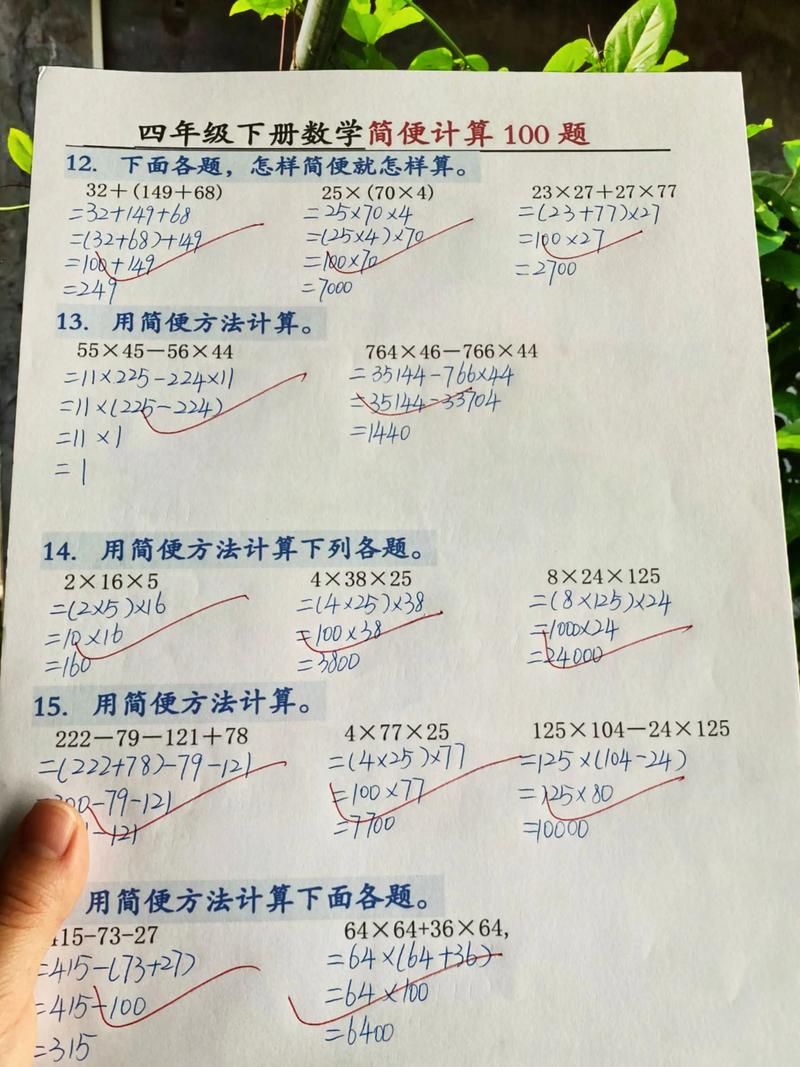 四年级下册数学简便计算100题
12. 下面各题，怎样简便就怎样算。
32＋(149＋68)
=32+149+68
=(32+68)+149
=100+149
=249
25×(70×4)
=25×70×4
=(25×4)×70
=100×70
=7000
23×27＋27×77
=(23+77)×27
=100×27
=2700
13. 用简便方法计算。
55×45－56×44
=11×225-224×11
=11×(225-224)
=11×1
=1
764×46－766×44
=35144-766×44
=35144-33704
=1440
14. 用简便方法计算下列各题。
2×16×5
=(2×5)×16
=10×16
=160
4×38×25
=(4×25)×38
=100×38
=3800
8×24×125
=(8×125)×24
=1000×24
=24000
15. 用简便方法计算。
222－79－121＋78
=(222+78)-79-121
00-79-121
-121
4×77×25
=(4×25)×77
=100×77
=7700
125×104－24×125
=125×(104-24)
=125×80
=10000
用简便方法计算下面各题。
415-73-27
=415-(73+27)
=415-100
=315
64×64+36×64,
=64×(64+36)
=64×100
=6400